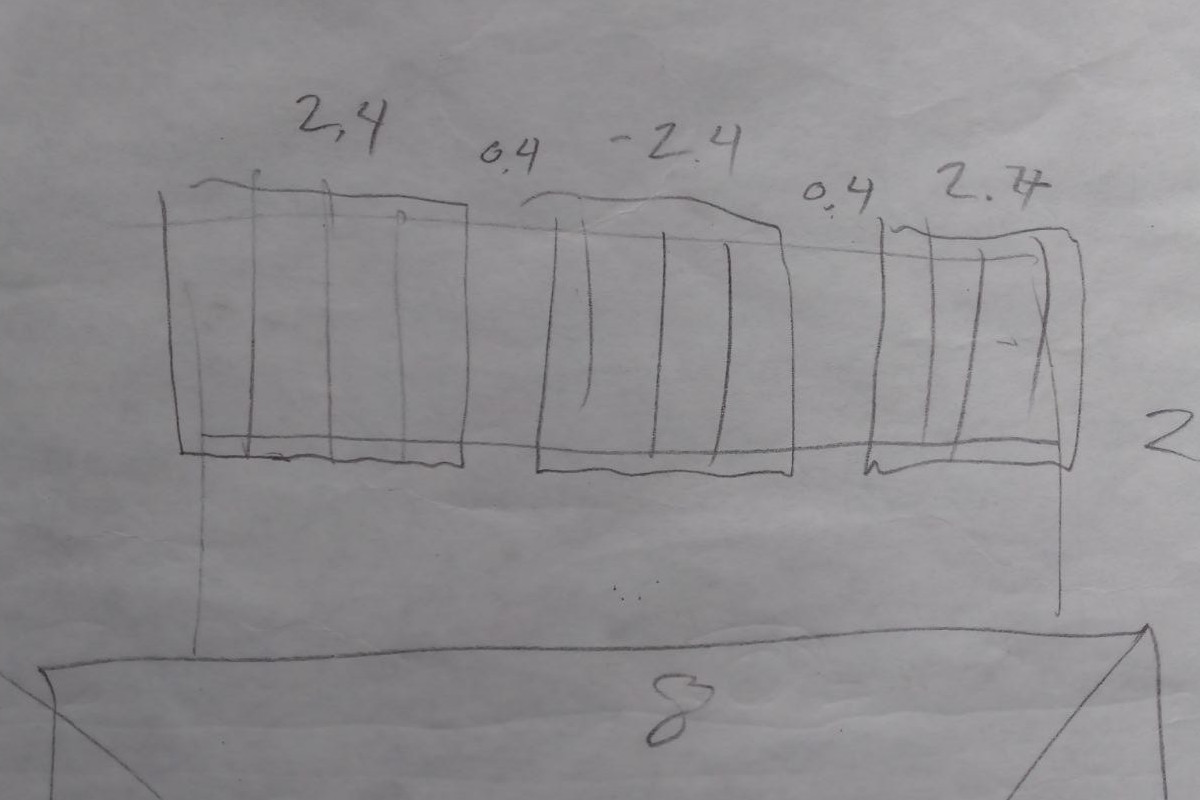 2,4 0,4 -2.4 0,4 2.4
2
8